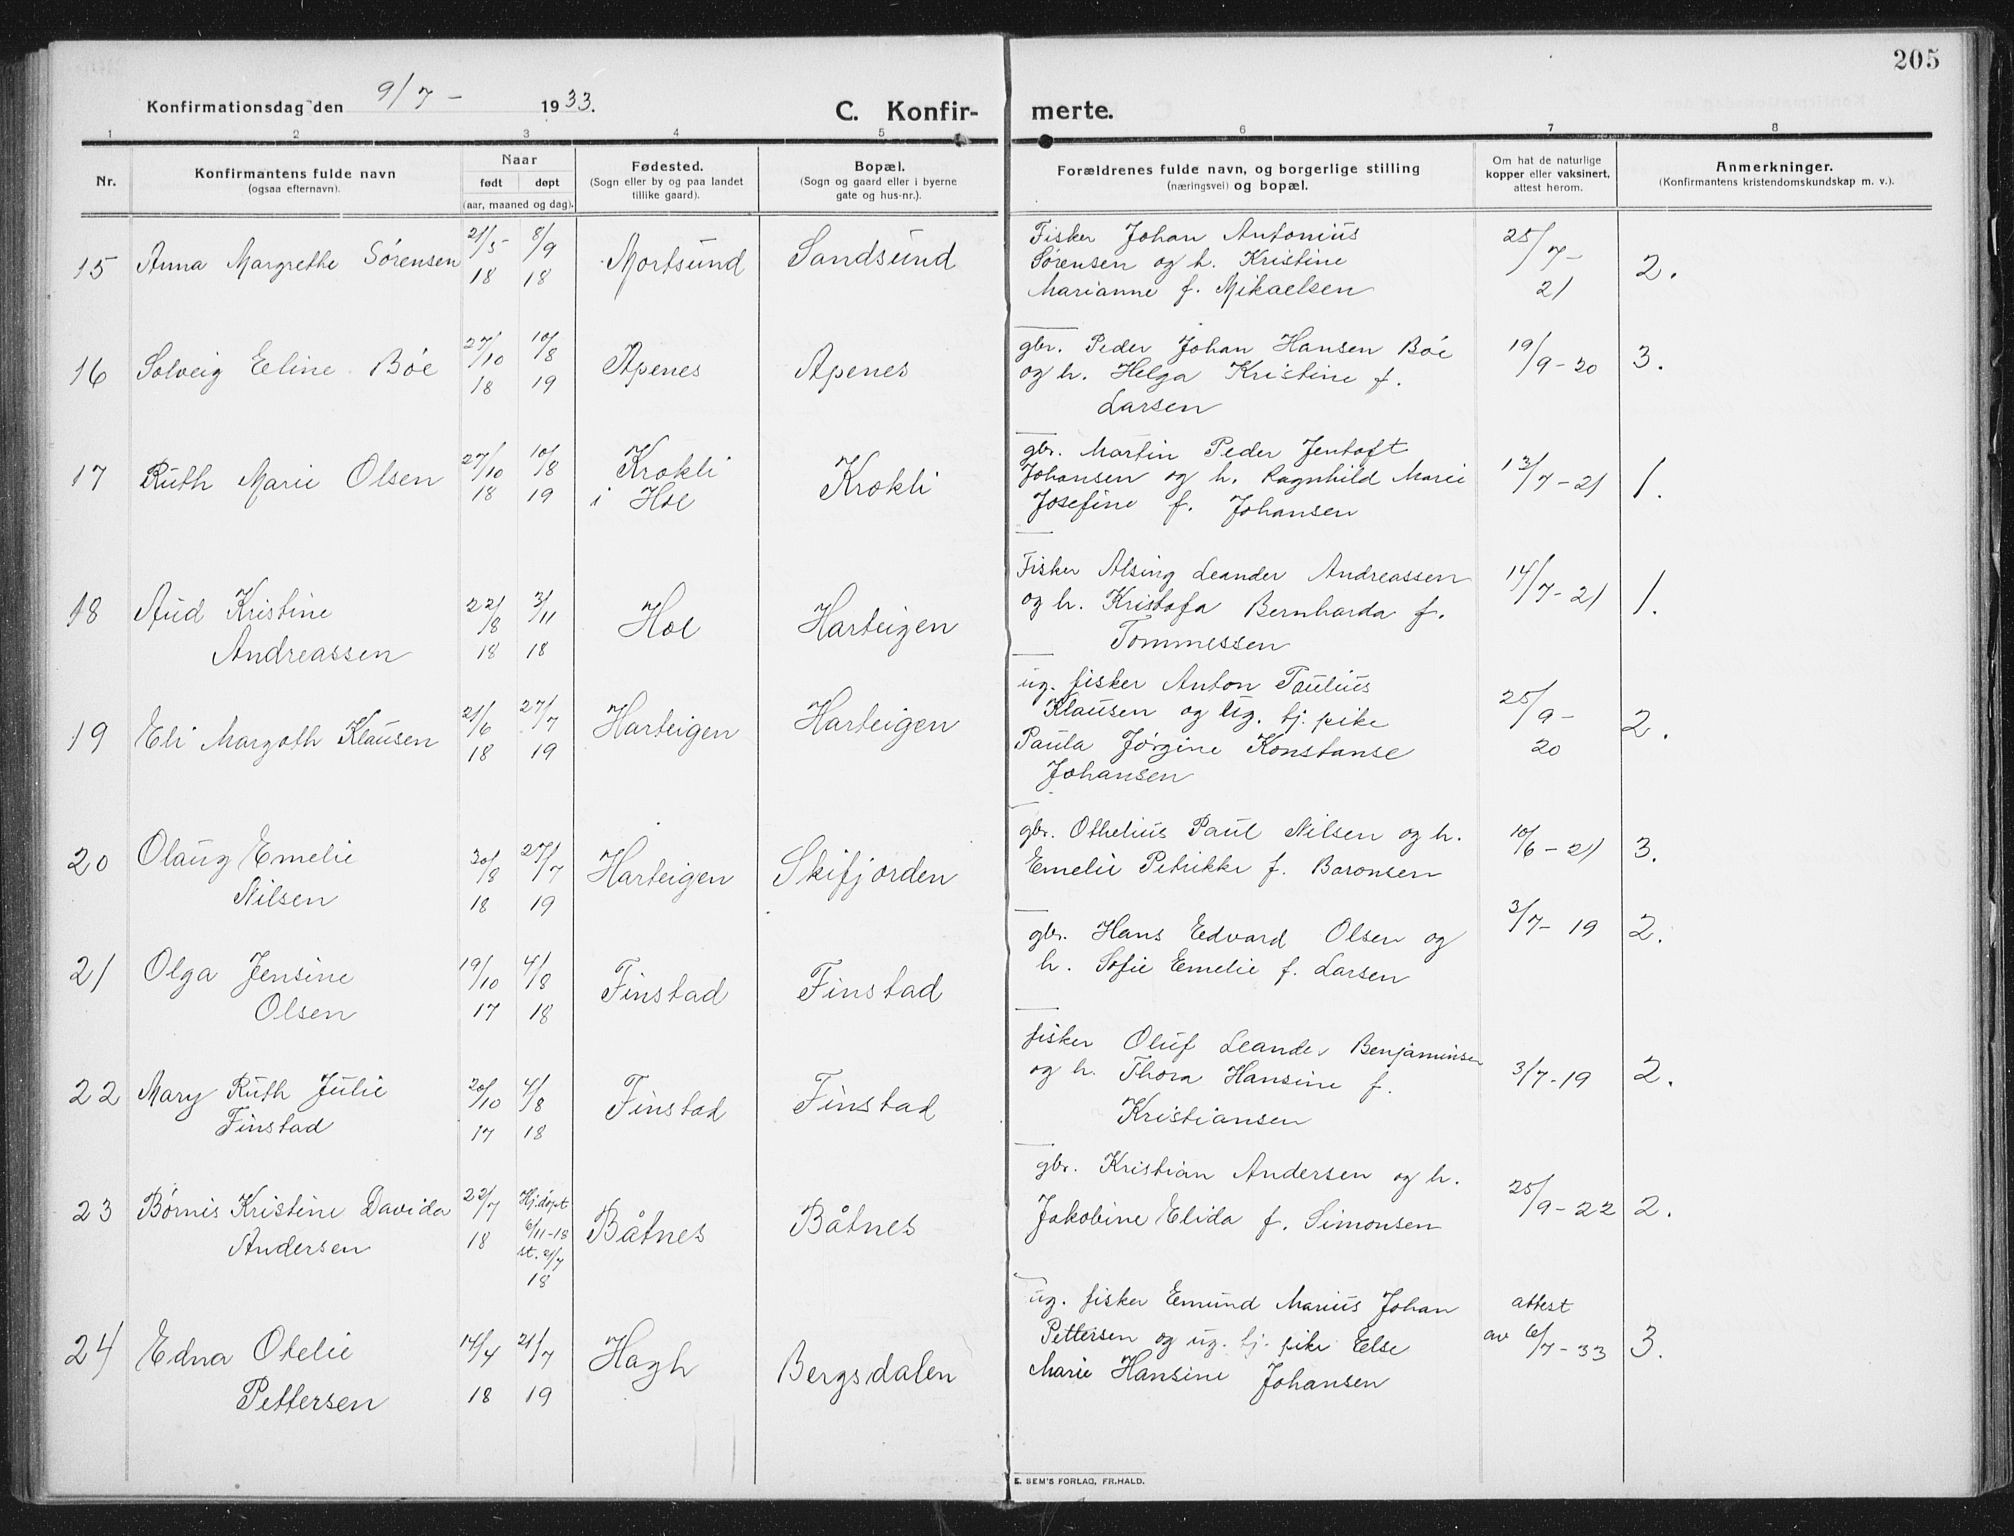 205
Konfirmationsdag den 9/7 - 1933.
C. Konfir-
merte.
1 2 3 4 5 6 7 8
Nr.
Konfirmantens fulde navn
(ogsaa efternavn).
Naar
født døpt
(aar, maaned og dag).
Fødested.
(Sogn eller by og paa landet
tillike gaard).
Bopæl.
(Sogn og gaard eller i byerne
gate og hus-nr.).
Forældrenes fulde navn, og borgerlige stilling
(næringsvei) og bopæl.
Om hat de naturlige
kopper eller vaksinert,
attest herom.
Anmerkninger.
(Konfirmantens kristendomskundskap m. v.).
15 Anna Margrethe Sørensen 21/5 18 8/9 18 Mortsund Sandsund
Fisker Johan Antonius
Sørensen og h. Kristine
Marianne f. Mikaelsen
25/7-
21
2.
16 Solveig Eline Bøe 27/10 18 10/8 19 Apenes Apenes
gbr. Peder Johan Hansen Bøe
og h. Helga Kristine f.
Larsen
19/9-20
3.
17 Ruth Marie Olsen 27/10 18 10/8 19 Krokli
i Hoe
Krokli
gbr. Martin Peder Jentoft
Johansen og h. Ragnhild Marie
Josefine f. Johansen
13/7-21
1.
18 Aud Kristine
Andreassen
22/8 18 3/11 18 Hoe Harteigen
Fisker Alsing Leander Andreassen
og h. Kristofa Bernharda f.
Tommessen
14/7-21
1.
19 Eli Margoth Klausen 21/6 18 27/7 19 Harteigen Harteigen
ug. fisker Anton Paulius
Klausen og ug. tj. pike
Paula Jørgine Konstanse
Johansen
25/9-
20
2.
20 Olaug Emelie
Nilsen
30/8 18 27/7 19 Harteigen Skifjorden
gbr. Othelius Paul Nilsen og h.
Emelie Petrikke f. Baronsen
10/6-21
3.
21 Olga Jensine
Olsen
19/10 17 4/8 18 Finstad Finstad
gbr. Hans Edvard Olsen og
h. Sofie Emelie f. Larsen
3/7-19
2.
22 Mary Ruth Julie
Finstad
20/10 17 4/8 18 Finstad Finstad
fisker Oluf Leander Benjaminsen
og h. Thora Hansine f.
Kristiansen
3/7-19
2.
23 Børnis Kristine Davida
Andersen
22/7 18
Hj.døpt
6/11-18
st. 21/7
18
Båtnes Båtnes
gbr. Kristian Andersen og h.
Jakobine Elida f. Simonsen
25/9-22
2.
24 Edna Otelie
Pettersen
14/4 18 21/7 19 Hagh Bergsdalen
ug. fisker Emund Marius Johan
Pettersen og ug. tj. pike Else
Marie Hansine Johansen
attest
av 6/7-33
3.
E. SEM'S FORLAG, FR.HALD.